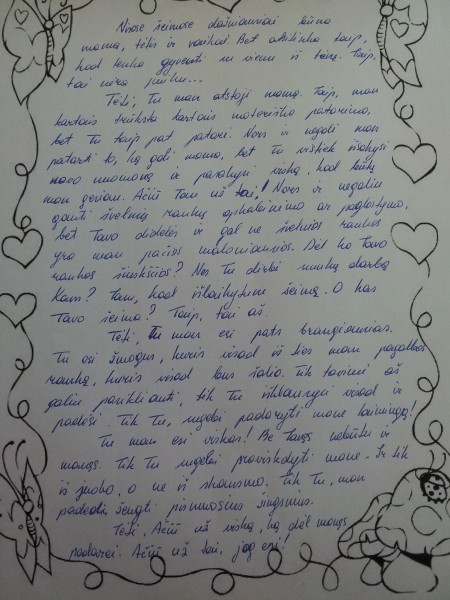 Visose šeimose dažniausiai būna
mama, tėtis ir vaikai. Bet atsitinka taip,
kad tenka gyventi su vienu iš tėvų. Taip,
tai nėra smilu...
Tėti, Tu man atstoji mamą. Taip, man
kartais trūksta kartais moteriško patarimo,
bet Tu taip pat patari. Nors ir negali man
patarti to, ką gali mama, bet Tu vistiek išsakysi
savo nuomonę ir padarysi viską, kad būtų
man geriau. Ačiū Tau už tai! Nors ir negaliu
gauti švelnių rankų apkabinimo ar paglostymo,
bet Tavo didelės ir gal ne švelnios rankos
yra man pačios maloniausios. Dėl ko Tavo
rankos šiurkščios? Nes Tu dirbi sunkų darbą
Kam? Tam, kad išlaikytum šeimą. O kas
Tavo šeima? Taip, tai aš.
Tėti, Tu man esi pats brangiausias.
Tu esi žmogus, kuris visad išties man pagalbos
ranką, kuris visad bus šalia. Tik tavimi aš
galiu pasikliauti, tik Tu išklausysi visad ir
padėsi. Tik Tu, sugebi padaryti mane laimingą!
Tu man esi viskas! Be Tavęs nebūtų ir
manęs. Tik Tu sugebi pravirkdyti mane. Ir tik
iš juoko, o ne iš skausmo. Tik Tu, man
padedi žengti pirmuosius žingsnius.
Tėti, Ačiū už viską, ką dėl manęs
padarei. Ačiū už tai, jog esi!